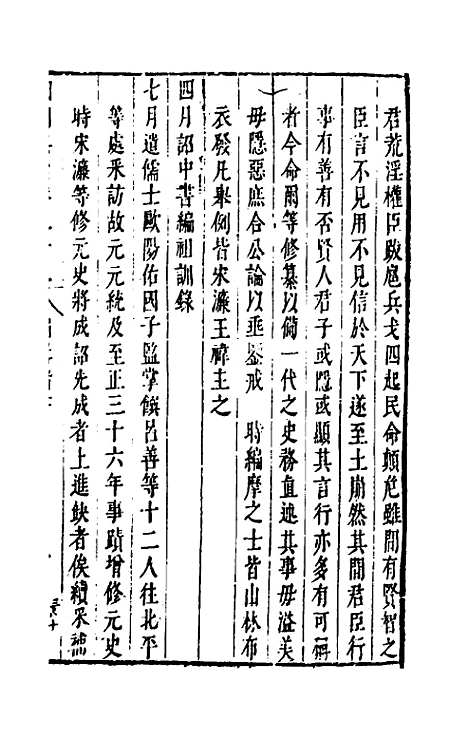 君荒淫權臣跋扈兵戈四起民命顛危雖間有賢智之
臣言不見用不見信於天下遂至土崩然其間君臣行
事有善有否賢人君子或隱或顯其言行亦多有可稱
者今命爾等修纂以備一代之史務直述其事毋溢美
毋隱惡庶合公論以垂鑒戒　時編摩之士皆山林布
衣發凡舉例皆宋濂王禕主之
四月詔中書編祖訓錄
七月遣儒士歐陽佑國子監掌饌呂善等十二人往北平
等處采訪故元元統及至正三十六年事蹟增修元史
時宋濂等修元史將成詔先成者上進缺者俟續采補